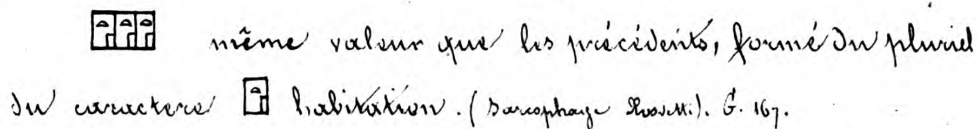 même valeur que les précédents, formé du pluriel
du caractere habitation. (Sarcophage Rossetti). G. 167.